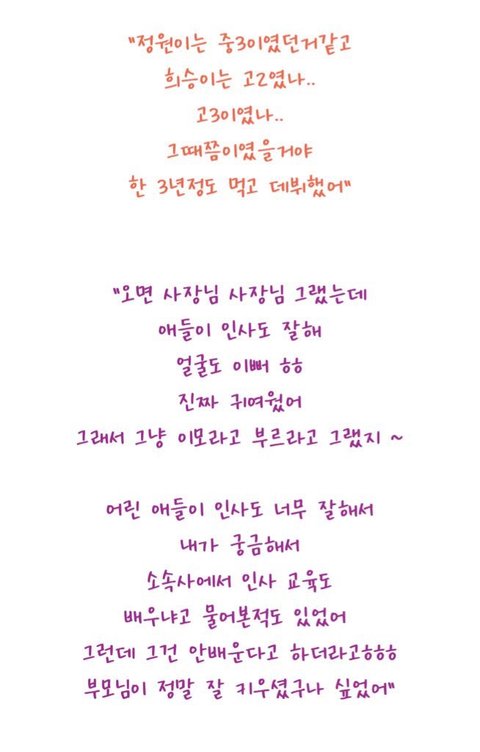 "정원이는 중3이였던거같고
희승이는 고2였나..
고3이였나..
그때쯤이였을거야
한 3년정도 먹고 데뷔했어"
"오면 사장님 사장님 그랬는데
애들이 인사도 잘해
얼굴도 이뻐 ㅎㅎ
진짜 귀여웠어
그래서 그냥 이모라고 부르라고 그랬지 ~
어린 애들이 인사도 너무 잘해서
내가 궁금해서
소속사에서 인사 교육도
배우냐고 물어본적도 있었어
그런데 그건 안배운다고 하더라고ㅎㅎㅎ
부모님이 정말 잘 키우셨구나 싶었어"